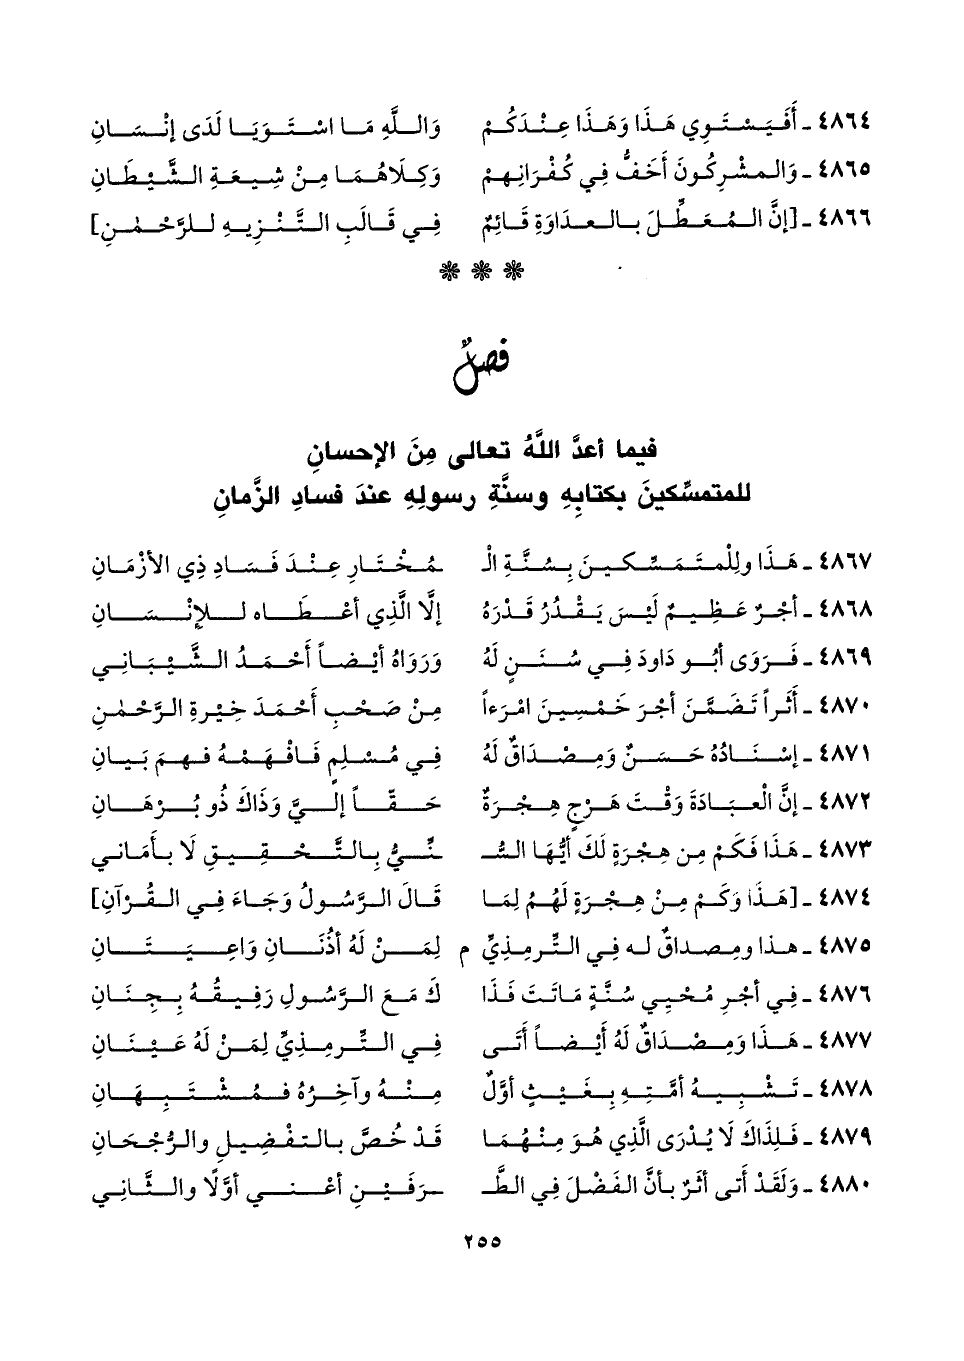 ٤٨٦٤ ـ أَفَيَسْتَوِي هَذَا وَهَذَا عِنْدَكُمْ وَاللَّهِ مَا اسْتَوَيَا لَدَى إِنْسَانِ
٤٨٦٥ ـ وَالمشْرِكُونَ أَخَفُّ فِي كُفْرَانِهِمْ وَكِلَاهُمَا مِنْ شِيعَةِ الشَّيْطَانِ
٤٨٦٦ ـ [إنَّ المُعَطِّلَ بِالعدَاوَةِ قَائِمٌ فِي قَالَبِ التَّنْزِيهِ لِلرَّحْمٰنِ]
❋ ❋ ❋
فصلٌ
فيما أعدَّ اللَّهُ تعالى مِنَ الإحسانِ
للمتمسِّكينَ بكتابِهِ وسنَّةِ رسولِهِ عندَ فسادِ الزَّمانِ
٤٨٦٧ ـ هَذَا ولِلْمتَمَسِّكينَ بِسُنَّةِ الْـ ـمُخْتَارِ عِنْدَ فَسَادِ ذِي الأزْمَانِ
٤٨٦٨ ـ أجْرٌ عَظِيمٌ لَيْسَ يَقْدُرُ قَدْرَهُ إلَّا الَّذِي أعْطَاه لِلإنْسَانِ
٤٨٦٩ ـ فَرَوَى أبُو دَاودَ فِي سُنَنٍ لَهُ وَرَوَاهُ أيْضاً أحْمَدُ الشَّيْبَانِي
٤٨٧٠ ـ أَثَراً تَضَمَّنَ أجْرَ خَمْسِينَ امْرَءاً مِنْ صَحْبِ أَحْمَدَ خِيْرةِ الرَّحْمٰنِ
٤٨٧١ ـ إسْنَادُهُ حَسَنٌ وَمِصْدَاقٌ لَهُ فِي مُسْلِمٍ فَافْهَمْهُ فهمَ بَيَانِ
٤٨٧٢ ـ إنَّ الْعبَادَةَ وَقْتَ هَرْجٍ هِجْرَةٌ حَقّاً إلَيَّ وَذَاكَ ذُو بُرْهَانِ
٤٨٧٣ ـ هَذَا فَكَمْ مِن هِجْرَةٍ لَكَ أيُّهَا السُّـ ـنِّيُّ بِالتَّحْقِيقِ لَا بِأَمَانِي
٤٨٧٤ ـ [هَذَا وَكَمْ مِنْ هِجْرَةٍ لَهُمُ لِمَا قَالَ الرَّسُولُ وَجَاءَ فِي القُرْآنِ]
٤٨٧٥ ـ هذا ومِصداقٌ له فِي التِّرمِذِيِّ م لِمَنْ لَهُ أُذُنَانِ وَاعِيَتَانِ
٤٨٧٦ ـ فِي أجْرِ مُحْيِي سُنَّةٍ مَاتَتْ فَذَا كَ مَعَ الرَّسُولِ رَفِيقُهُ بِجِنَانِ
٤٨٧٧ ـ هَذَا وَمِصْدَاقٌ لَهُ أيْضاً أَتَى فِي التِّرمِذِيِّ لِمَنْ لَهُ عَيْنَانِ
٤٨٧٨ ـ تَشْبِيهُ أمَّتِهِ بِغَيْثٍ أوَّلٌ مِنْهُ وآخِرُهُ فمُشْتَبِهَانِ
٤٨٧٩ ـ فَلِذَاكَ لَا يُدْرَى الَّذِي هُوَ مِنْهُمَا قَدْ خُصَّ بِالتفْضِيلِ والرُّجْحَانِ
٤٨٨٠ ـ وَلَقَدْ أَتَى أثَرٌ بأنَّ الفَضْلَ فِي الطَّـ ـرَفَيْنِ أعْنِي أوَّلًا والثَّانِي
٢٥٥